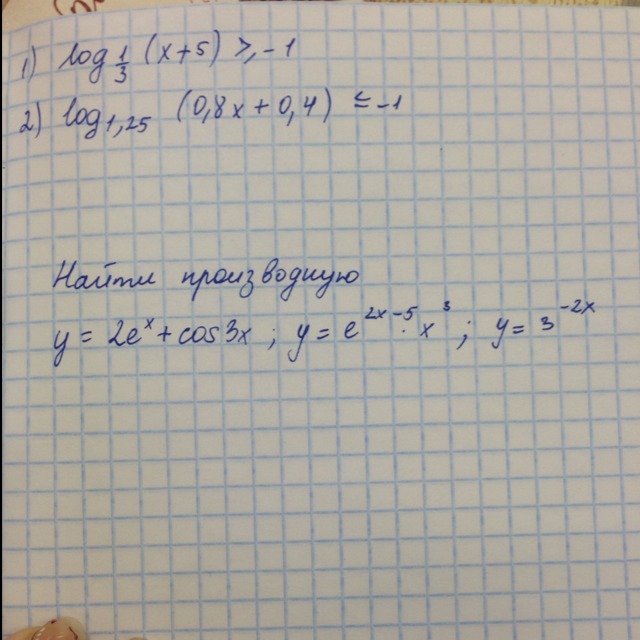 1) log 1/3 (x+5) ⩾ -1
2) log₁,₂₅ (0,8x + 0,4) ≤ -1
Найти производную
y = 2eˣ + cos3x ; y = e²ˣ⁻⁵ · x³ ; y = 3⁻²ˣ